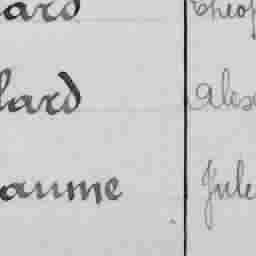 ard Théop
lard Alex
aume Jule